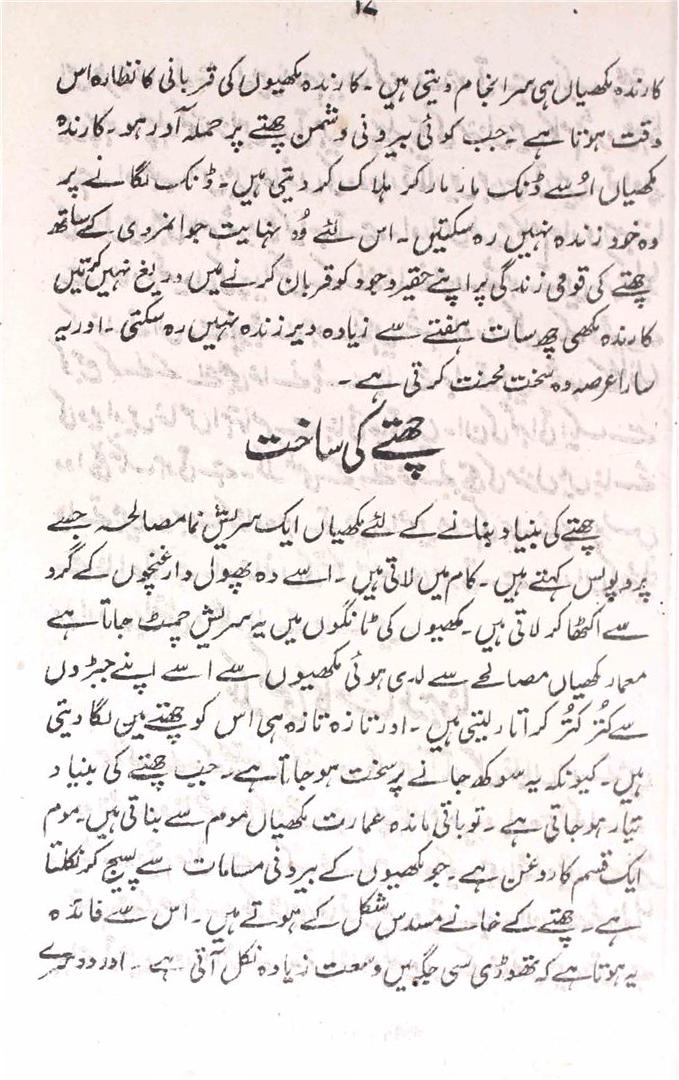 ۱۷
کارندہ مکھیاں ہی سرانجام دیتی ہیں۔ کارندہ مکھیوں کی قربانی کا نظارہ اس
وقت ہوتا ہے۔ جب کوئی بیرونی دشمن چھتے پر حملہ آور ہو۔ کارندہ
مکھیاں اُسے ڈنک مار مار کر ہلاک کر دیتی ہیں۔ ڈنک لگانے پر
وہ خود زندہ نہیں رہ سکتیں۔ اس لئے وُہ نہایت جوانمردی کے ساتھ
چھتے کی قومی زندگی پر اپنے حقیر وجود کو قربان کرنے میں دریغ نہیں کرتیں
کارندہ مکھی چھ سات ہفتے سے زیادہ دیر زندہ نہیں رہ سکتی۔ اور یہ
سارا عرصہ وہ سخت محنت کرتی ہے۔
چھتے کی ساخت
چھتے کی بنیاد بنانے کے لئے مکھیاں ایک سریش نما مصالحہ جسے
پروپولس کہتے ہیں۔ کام میں لاتی ہیں۔ اسے وہ پھول دار غنچوں کے گرد
سے اکٹھا کر لاتی ہیں۔ مکھیوں کی ٹانگوں میں یہ سریش چمٹ جاتا ہے
معمار مکھیاں مصالحے سے لدی ہوئی مکھیوں سے اسے اپنے جبڑوں
سے کتُر کتُر کر اتار لیتی ہیں۔ اور تازہ تازہ ہی اس کو چھتے میں لگا دیتی
ہیں۔ کیونکہ یہ سوکھ جانے پر سخت ہو جاتا ہے۔ جب چھتے کی بنیاد
تیار ہو جاتی ہے۔ تو باقی ماندہ عمارت مکھیاں موم سے بناتی ہیں۔ موم
ایک قسم کا روغن ہے۔ جو مکھیوں کے بیرونی مسامات سے پسیج کر نکلتا
ہے۔ چھتے کے خانے مسدس شکل کے ہوتے ہیں۔ اس سے فائدہ
یہ ہوتا ہے کہ تھوڑی سی جگہ میں وسعت زیادہ نکل آتی ہے۔ اور دوسرے